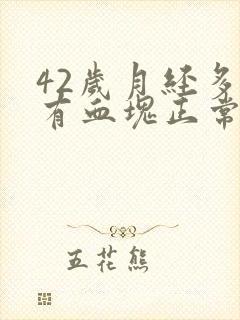 42歲月經多
有血塊正常
五花熊